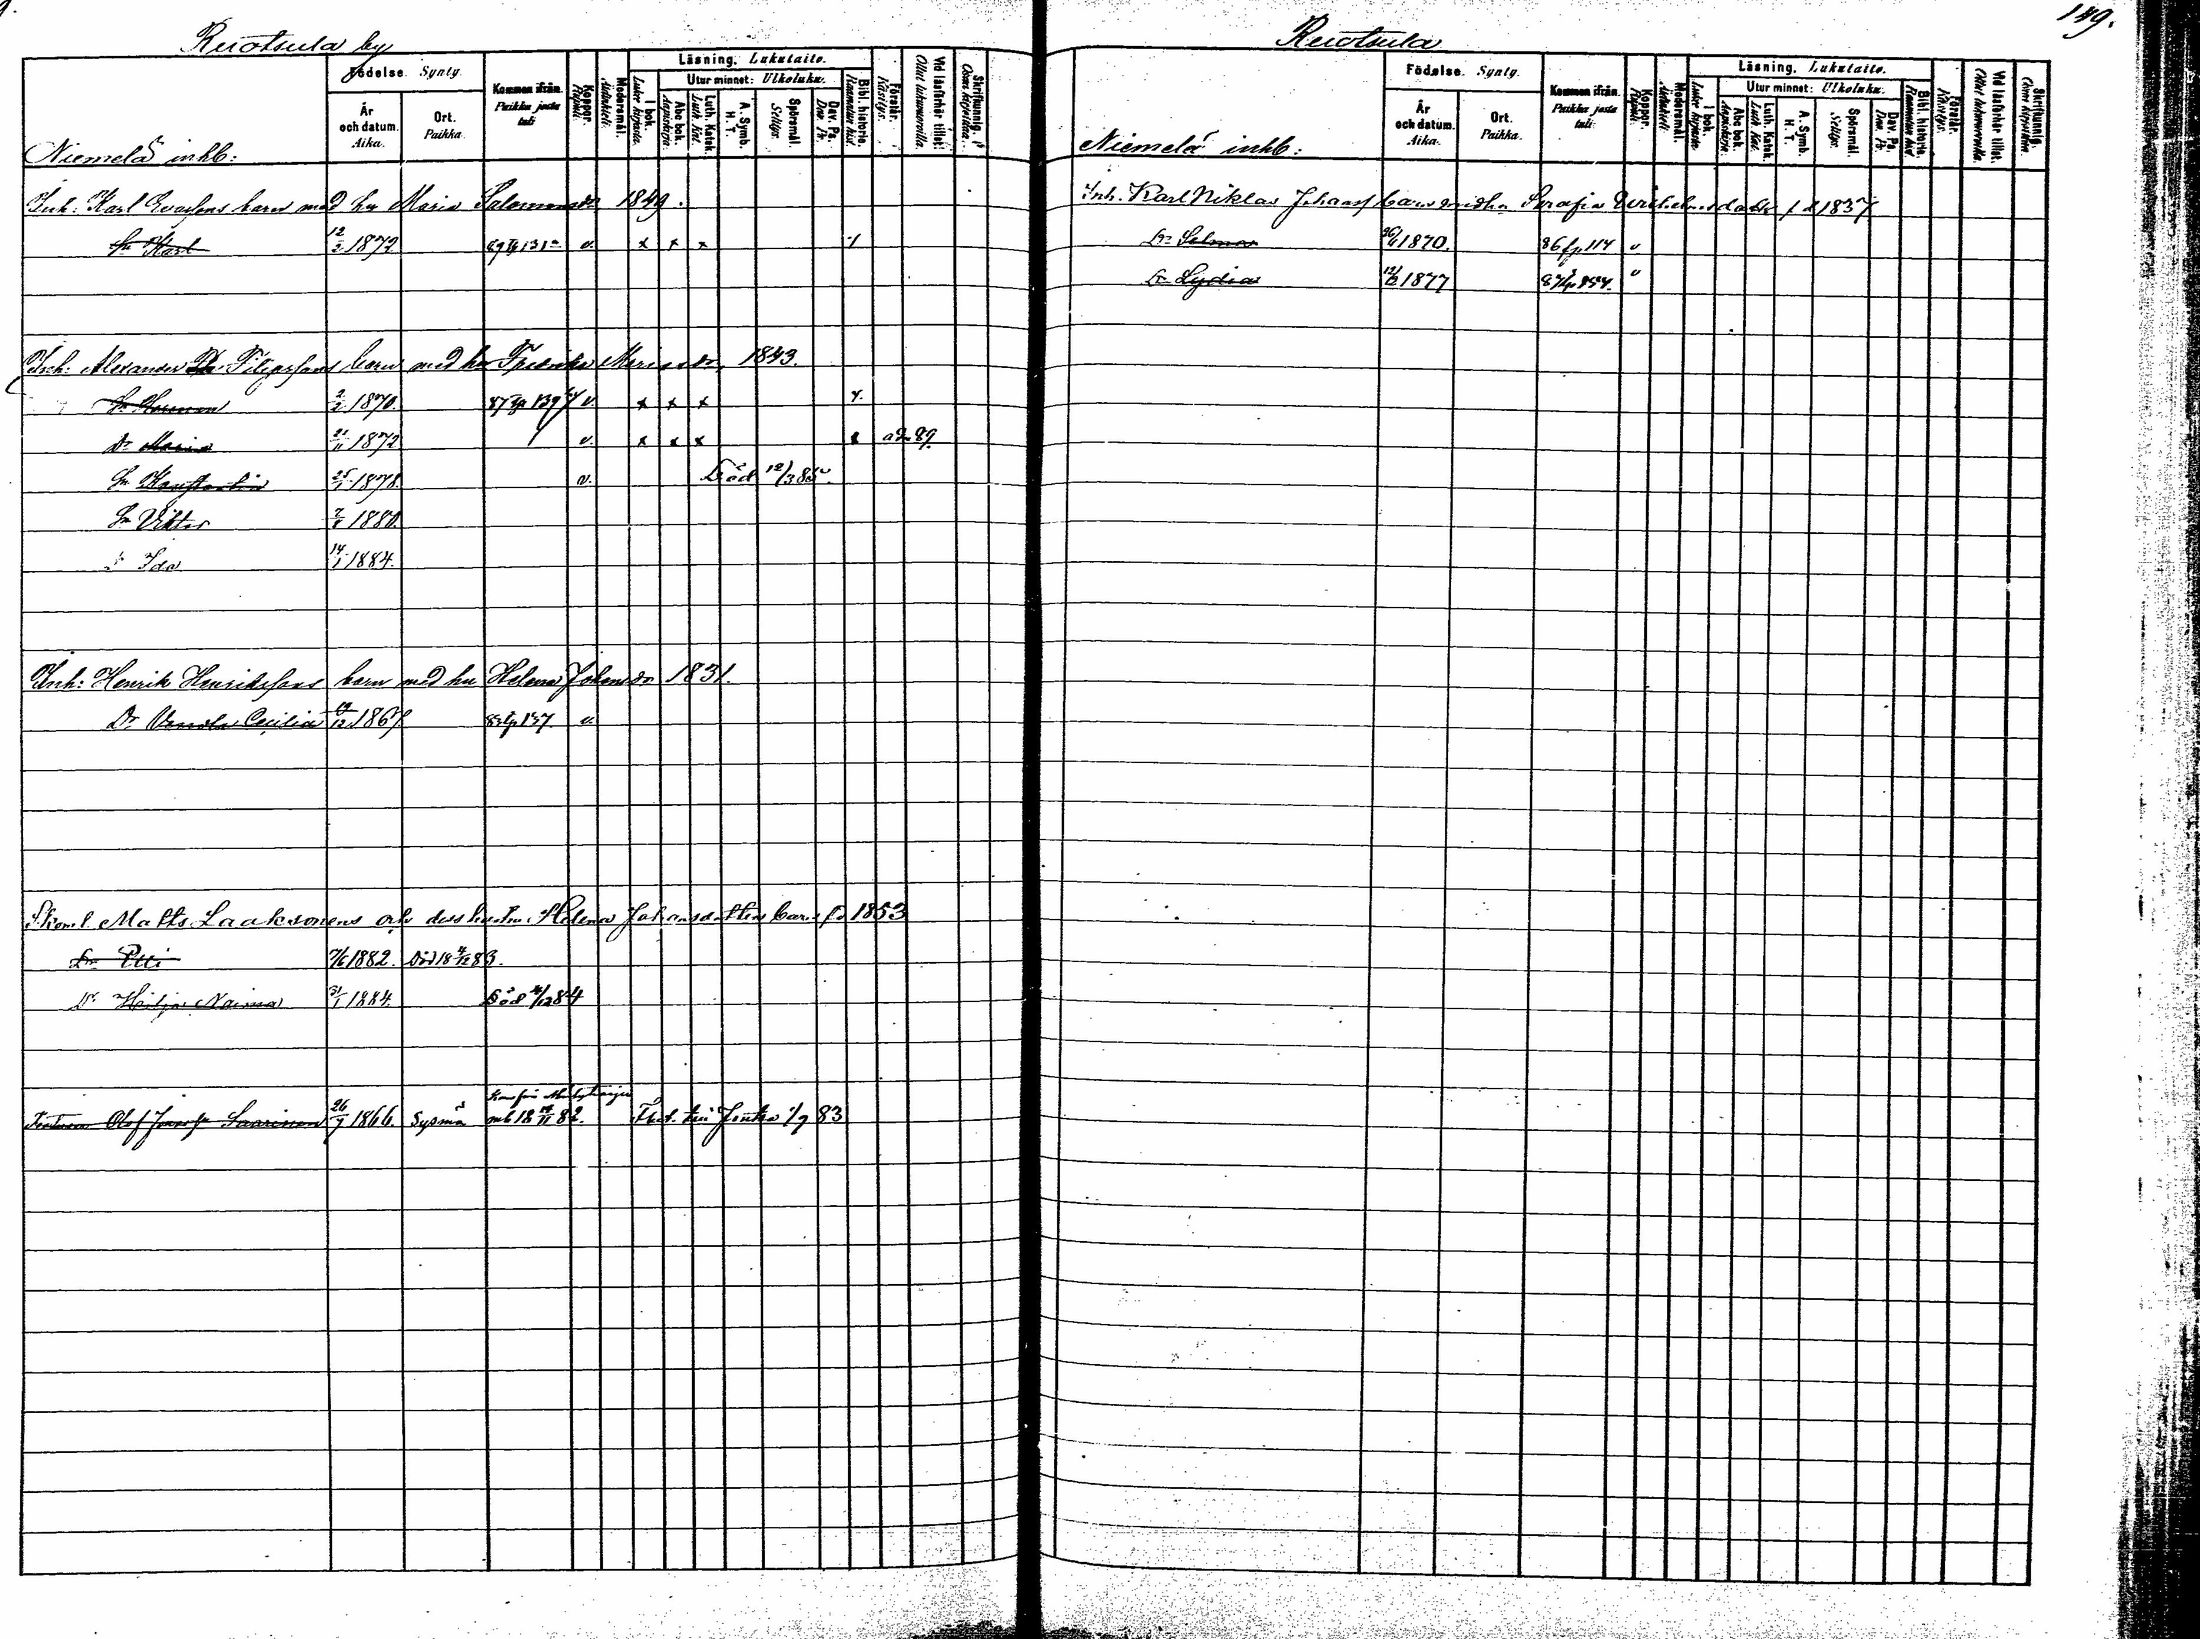 149.
Ruotsula by
Födelse. Synty.
År och datum. Aika.
Ort. Paikka.
Kommen ifrån. Paikka josta tuli
Koppor. Rupuli.
Modersmål. Äidinkieli.
Läsning. Lukutaito.
I bok. Lukee kirjasta.
Utur minnet: Ulkoluku.
Abc bok. Aapiskirja.
Luth. Katek. Luth. Kat.
A. Symb. H. T.
Spörsmål. Selitys.
Dav. Ps. Dav. Ps.
Bibl. historia. Raamatun hist.
Förstår. Käsitys.
Vid läsförhör tillst. Ollut lukuvuorolla.
Skriftkunnig. Osaa kirjoittaa.
Niemelä inhb:
Inh: Karl Evassons barn med hu Maria Salomonsdr 1849.
Sn Karl 12/2 1872 v. x x x
Inh: Alexander Filipssons barn med hu Fredrika Mariasdr. 1843.
Sn Herman 2/2 1870. v. x x x
Dr Maria 21/11 1872 v. x x x adm 89.
Sn Konstantin 25/1 1878. v. Död 12/3 85.
Sn Viktor 1880.
Dr Ida 14/1 1884.
Inh: Henrik Henrikssons barn med hu Helena Johansdr 1831.
Dr Vendla Cecilia 19/12 1867 v.
Skoml. Matts Laaksonens och dess hustru Helena Johansdotters barn fd 1853
Dr Etti 7/6 1882. Död 18 4/12 83.
Dr Hilja Naima 31/1 1884. Död 4/12 84
Olof Saarinen 26/7 1866. Sysmä mb 18 82. Flyt. till Jontka 1/9 83
Ruotsula
Födelse. Synty.
År och datum. Aika.
Ort. Paikka.
Kommen ifrån. Paikka josta tuli:
Koppor. Rupuli.
Modersmål. Äidinkieli.
Läsning. Lukutaito.
I bok. Lukee kirjasta.
Utur minnet: Ulkoluku.
Abc bok. Aapiskirja.
Luth. Katek. Luth. Kat.
A. Symb. H. T.
Spörsmål. Selitys.
Dav. Ps. Dav. Ps.
Bibl. historia. Raamatun hist.
Förstår. Käsitys.
Vid läsförhör tillst. Ollut lukuvuorolla.
Skriftkunnig. Osaa kirjoittaa.
Niemelä inhb:
Inh. Karl Niklas Johanss barn m. dhu Serafia Wilhelmsdotter f. d 1837
Dr Selma 26/6 1870. 86 fp 114 v
Dr Lydia 12/12 1877 v